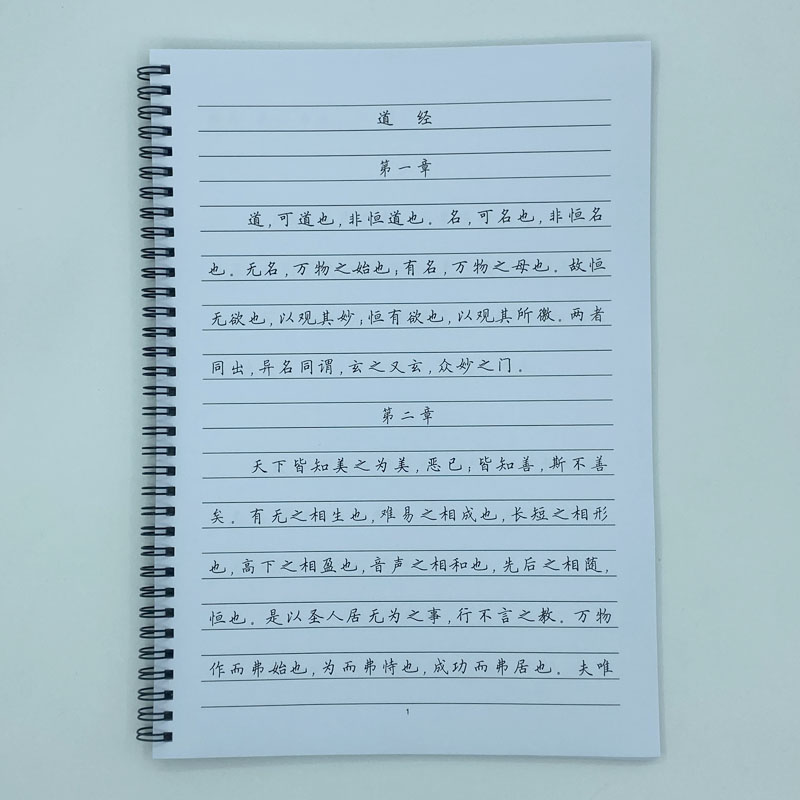 道 经
第一章
道,可道也,非恒道也.名,可名也,非恒名
也.无名,万物之始也;有名,万物之母也.故恒
无欲也,以观其妙;恒有欲也,以观其所徼.两者
同出,异名同谓,玄之又玄,众妙之门.
第二章
天下皆知美之为美,恶已;皆知善,斯不善
矣.有无之相生也,难易之相成也,长短之相形
也,高下之相盈也,音声之相和也,先后之相随,
恒也.是以圣人居无为之事,行不言之教.万物
作而弗始也,为而弗恃也,成功而弗居也.夫唯
1